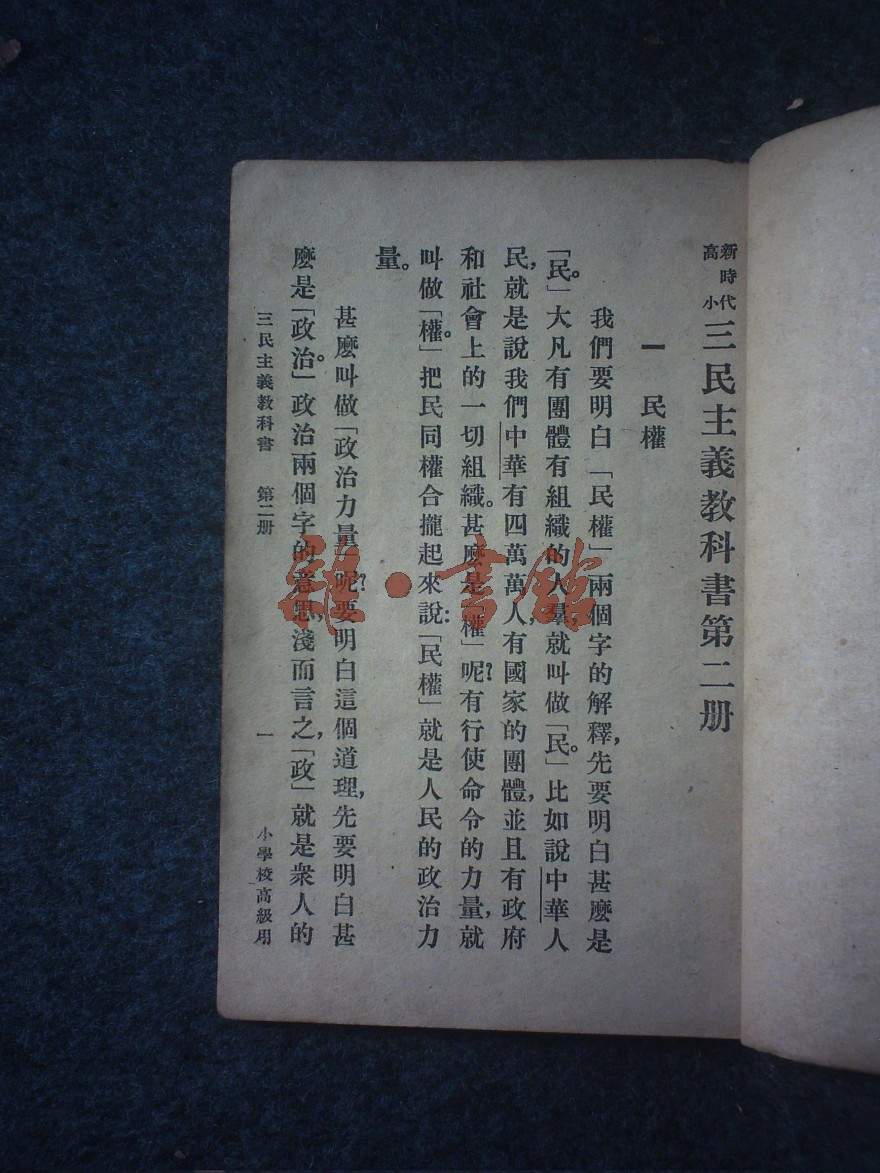 新時代高小 三民主義教科書第二册
一 民權
我們要明白「民權」兩個字的解釋，先要明白甚麽是
「民。」大凡有團體有組織的人羣，就叫做「民。」比如說中華人
民，就是說我們中華有四萬萬人，有國家的團體，並且有政府
和社會上的一切組織。甚麽是「權」呢？有行使命令的力量，就
叫做「權。」把民同權合攏起來說：「民權」就是人民的政治力
量。
甚麽叫做「政治力量」呢？要明白這個道理，先要明白甚
麽是「政治。」政治兩個字的意思，淺而言之，「政」就是衆人的
三民主義教科書 第二册 一 小學校高級用